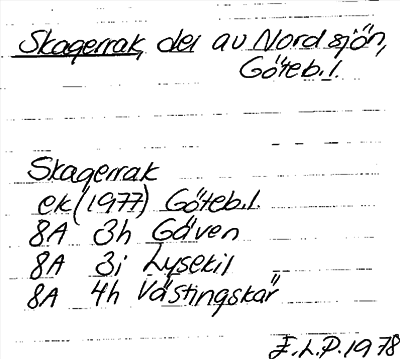 Skagerrak, del av Nordsjön,
Göteb.l.
Skagerrak
ek (1977) Göteb.l.
8A 3h Gåven
8A 3i Lysekil
8A 4h Västingskär
E.L.P. 1978